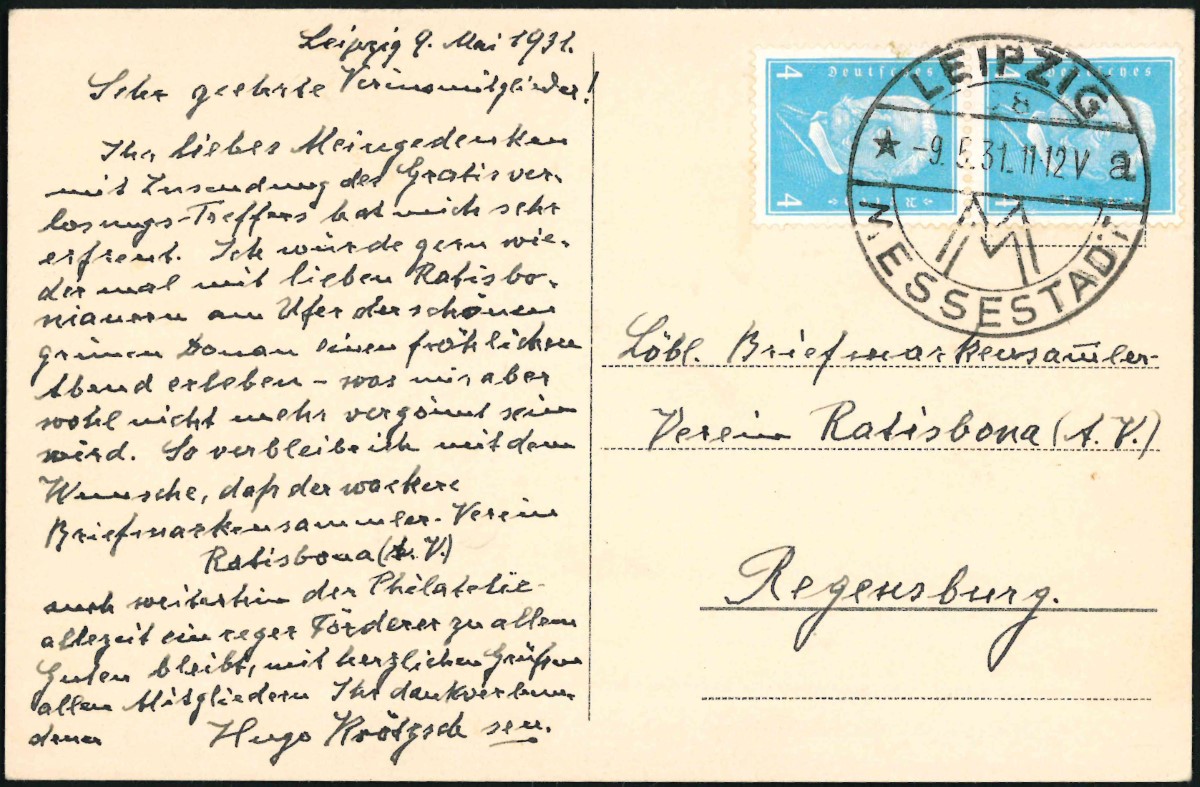 Leipzig 9. Mai 1931.
Sehr geehrte Vereinsmitglieder!
Ihr liebes Meingedenken
mit Zusendung des Gratisver-
losungs-Treffers hat mich sehr
erfreut. Ich würde gern wie-
der mal mit lieben Ratisbo-
nianern am Ufer der schönen
grünen Donau einen fröhlichen
Abend erleben – was mir aber
wohl nicht mehr vergönnt sein
wird. So verbleibe ich mit dem
Wunsche, daß der wackere
Briefmarkensammler-Verein
Ratisbona (A. V.)
auch weiterhin der Philatelie
allezeit ein reger Förderer zu allem
Guten bleibt, mit herzlichen Grüßen
allen Mitgliedern Ihr dankverbun-
dener Hugo Krötzsch sen.
Deutsches
4
4
Deutsches
4
4
LEIPZIG
8
-9.5.31.11-12V a
M
MESSESTADT
Löbl. Briefmarkensam̅ler-
Verein Ratisbona (A. V.)
Regensburg.